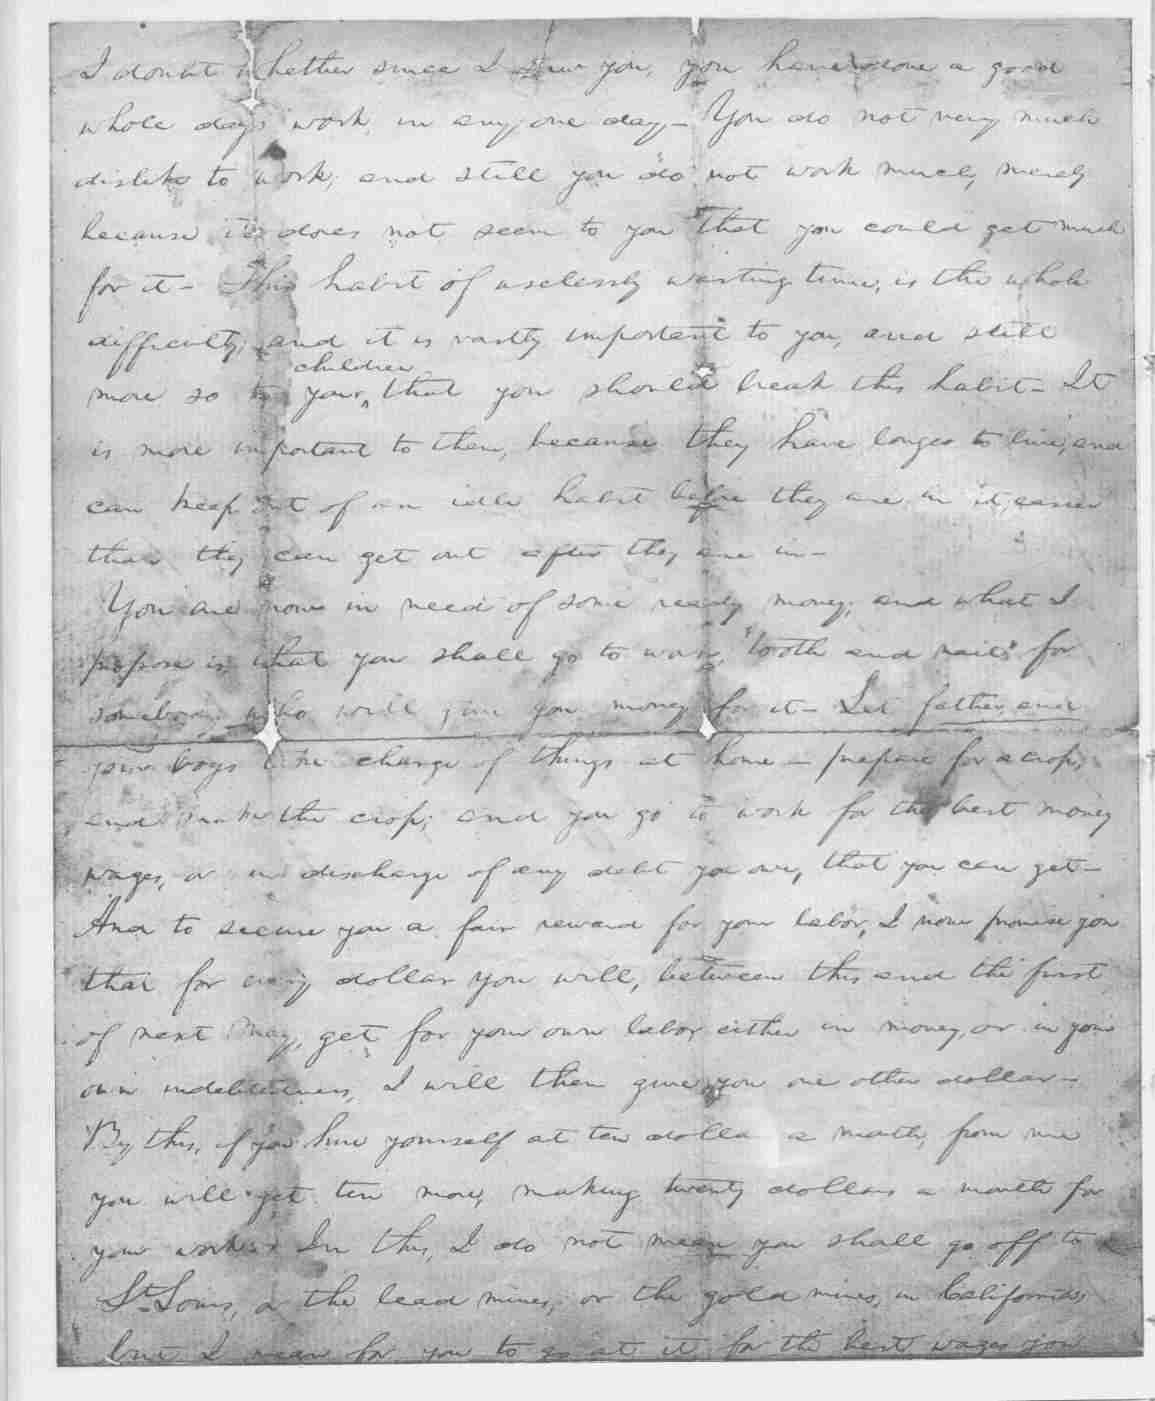 I doubt whether since I saw you, you have done a good
whole day's work, in any one day — You do not very much
dislike to work; and still you do not work much, merely
because it does not seem to you that you could get much
for it — This habit of uselessly wasting time, is the whole
difficulty; and it is vastly important to you, and still
children
more so to your ‸ that you should break this habit — It
is more important to them, because they have longer to live, and
can keep out of an idle habit before they are in it, easier
than they can get out after they are in —
You are now in need of some ready money; and what I
propose is, that you shall go to work, "tooth and nail" for
somebody who will give you money for it — Let father and
your boys take charge of things at home — prepare for a crop,
and make the crop; and you go to work for the best money
wages, or in discharge of any debt you owe, that you can get —
And to secure you a fair reward for your labor, I now promise you
that for every dollar you will, between this and the first
of next May, get for your own labor either in money, or in your
own indebtedness, I will then give you one other dollar —
By this, if you hire yourself at ten dolla a month, from me
you will get ten more, making twenty dollars a month for
your work — In this, I do not mean you shall go off to
St. Louis, or the lead mines, or the gold mines, in California,
but I mean for you to go at it for the best wages you